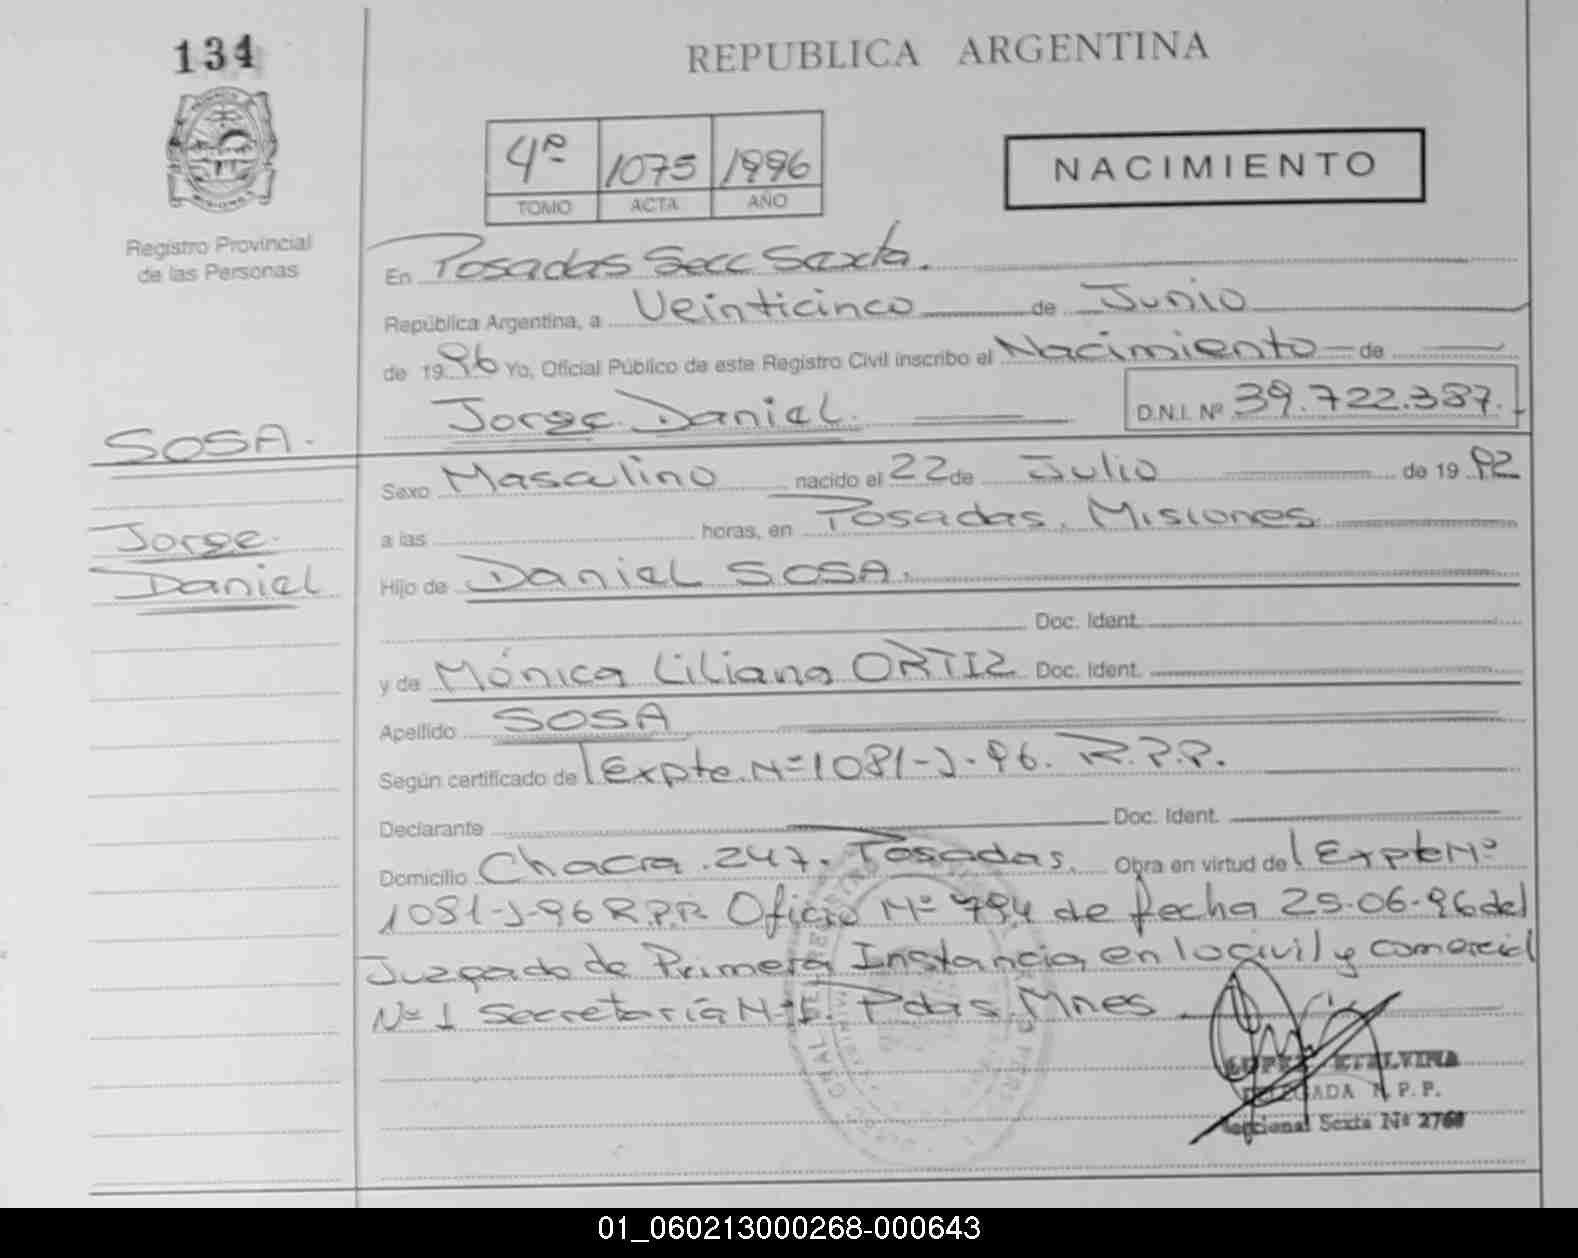 134
REPUBLICA ARGENTINA
4º 1075 1996
TOMO ACTA AÑO
NACIMIENTO
Registro Provincial
de las Personas
En Posadas Secc Sexta.
República Argentina, a Veinticinco de Junio
de 1996 Yo, Oficial Público de este Registro Civil inscribo el Nacimiento de
Jorge Daniel. D.N.I. Nº 39.722.387.
SOSA.
Jorge
Daniel
Sexo Masculino nacido el 22 de Julio de 1992
a las horas, en Posadas. Misiones
Hijo de Daniel SOSA.
Doc. Ident.
y de Mónica Liliana ORTIZ Doc. Ident.
Apellido SOSA
Según certificado de Expte. Nº 1081-J-96. R.P.P.
Declarante Doc. Ident.
Domicilio Chacra 247. Posadas. Obra en virtud de Expte Nº
1081-J-96 R.P.P. Oficio Nº 794 de fecha 25-06-96 del
Juzgado de Primera Instancia en lo civil y comercial
Nº 1 Secretaría Nº 1. Pdas. Mnes
LOPEZ ETELVINA
DELEGADA R. P. P.
Seccional Sexta Nº 2768
01_060213000268-000643